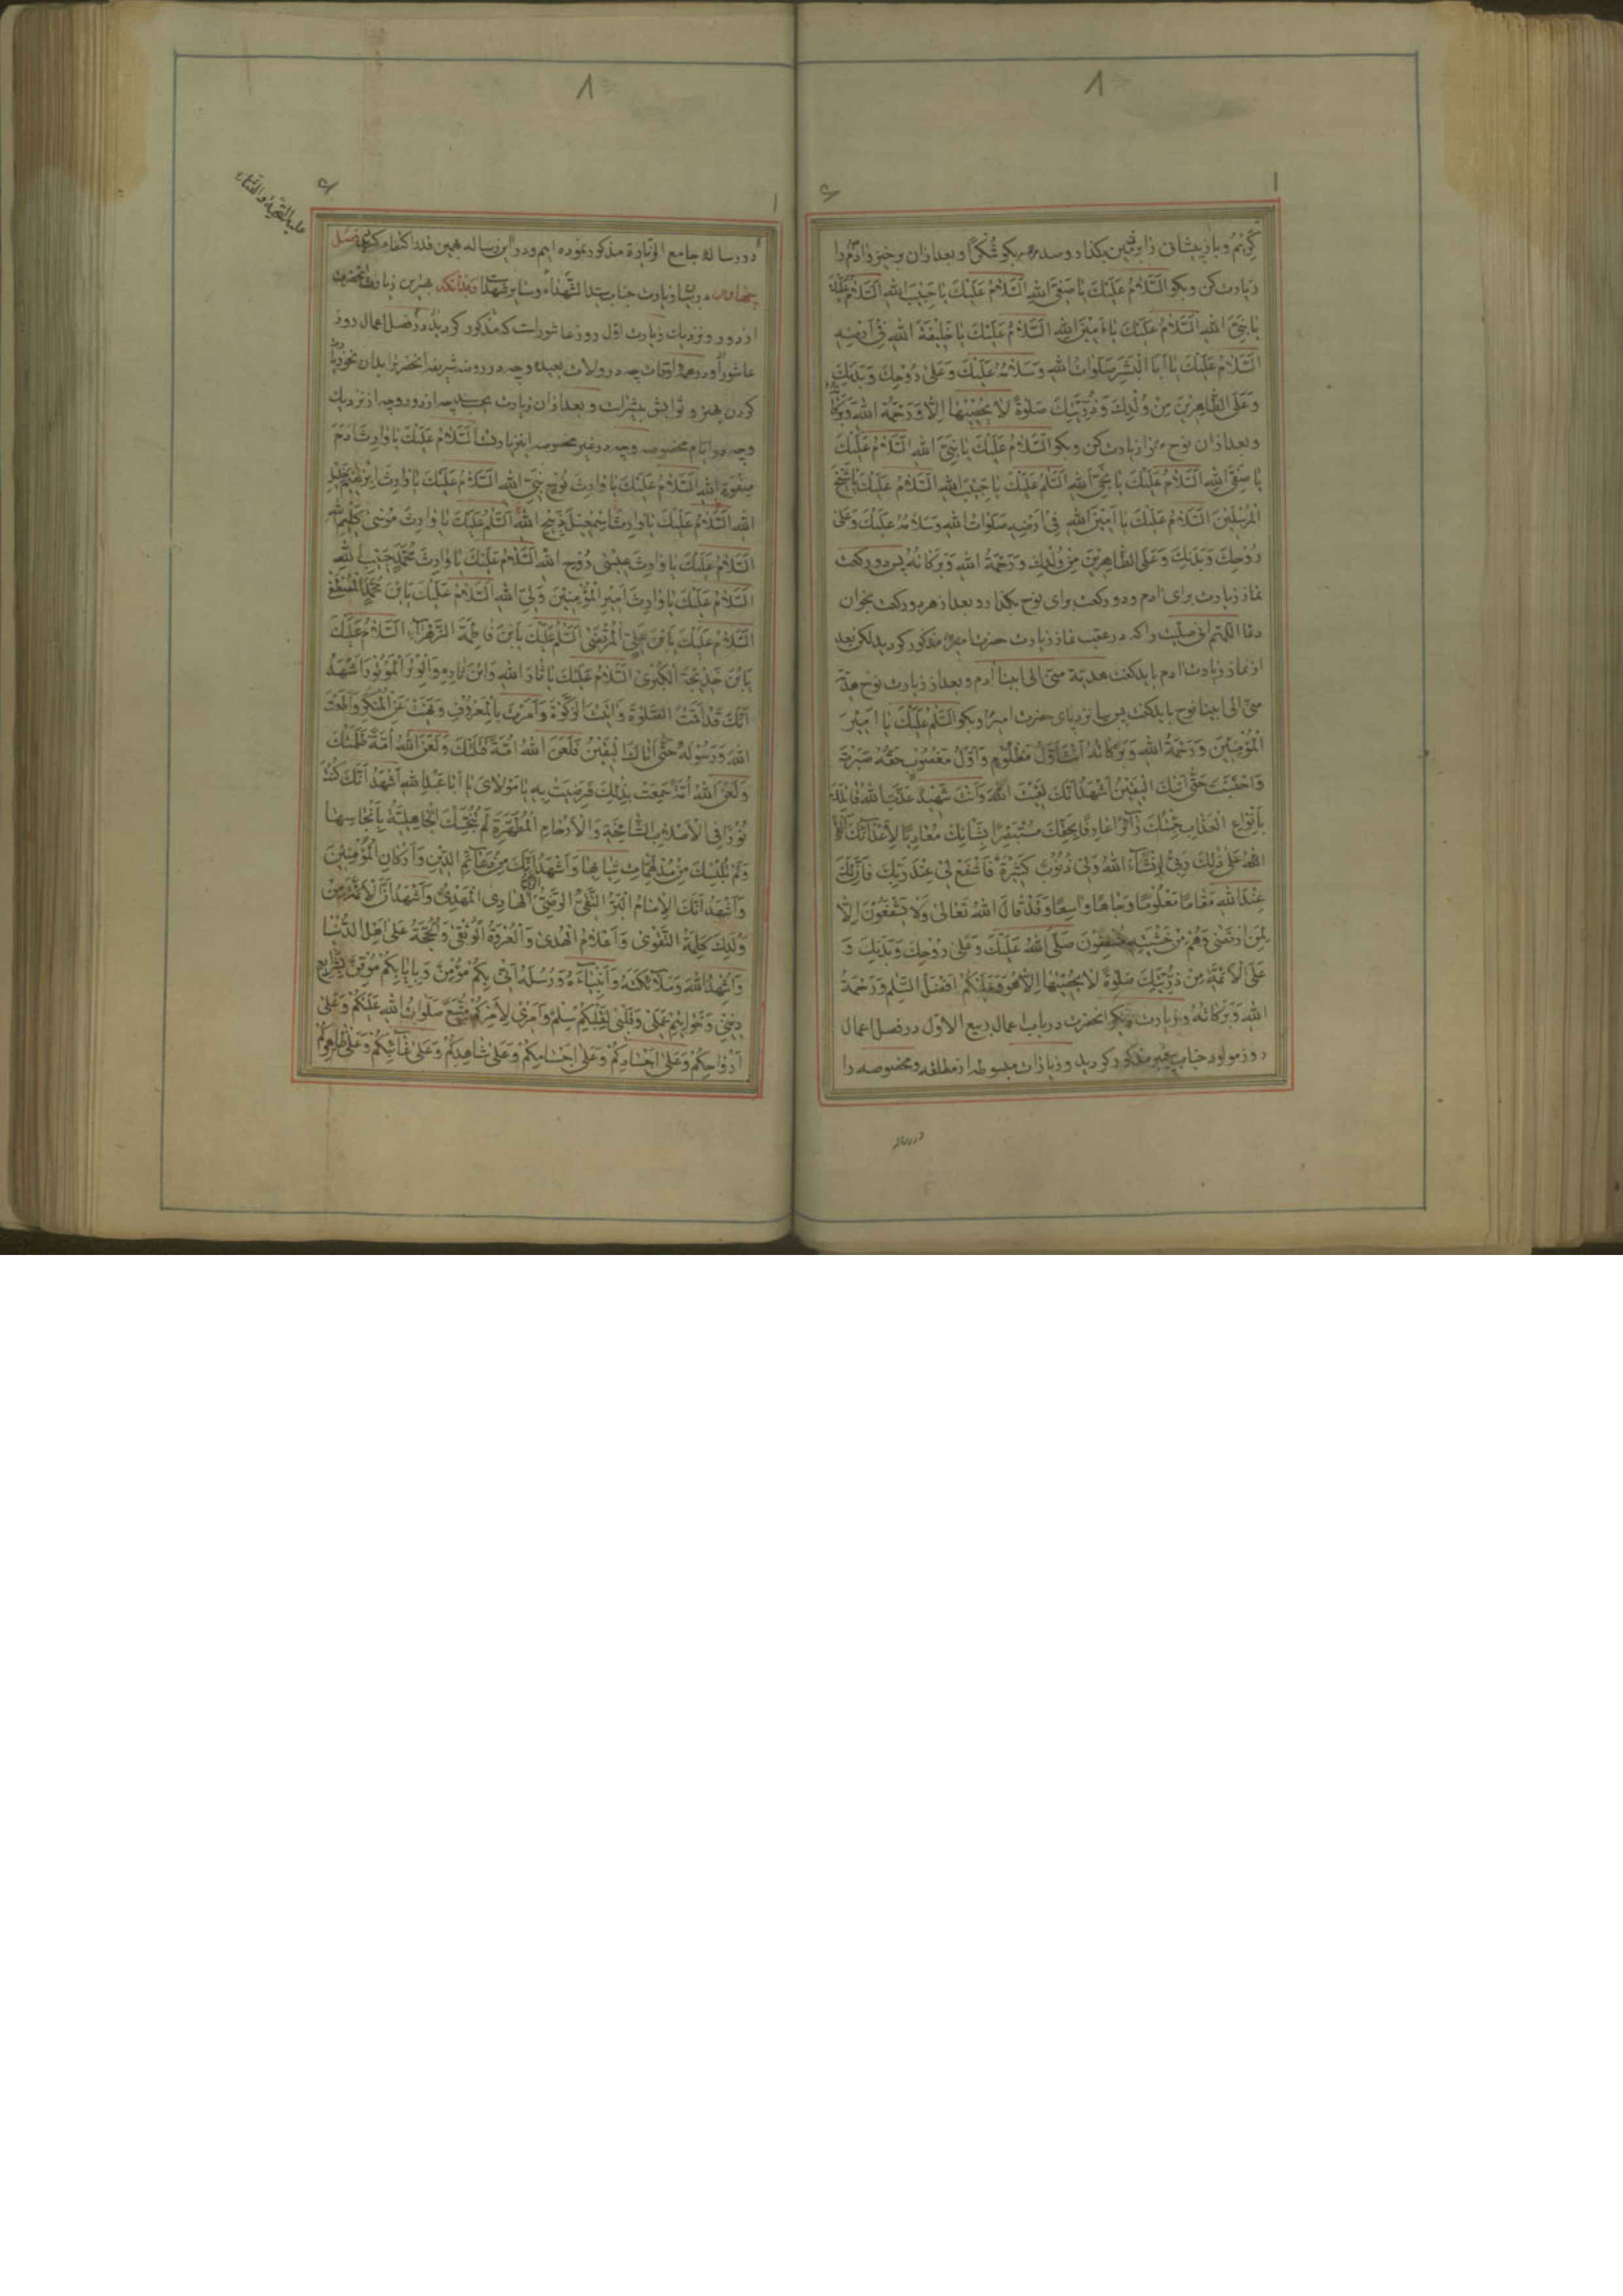 ۸
کَرِیْمُ و باز پیشانی را بر زمین بگذار و صد مرتبه بگو شُکْرًا و بعد از ان برخیز و ادم را
زیارت کن و بگو اَلسَّلامُ عَلَیْكَ یا صَفِیَّ اللهِ اَلسَّلامُ عَلَیْكَ یا حَبیْبَ اللهِ اَلسَّلامُ عَلَیْكَ
یا نَبِیَّ اللهِ اَلسَّلامُ عَلَیْكَ یا اَمیْنَ اللهِ اَلسَّلامُ عَلَیْكَ یا خَلیْفَةَ اللهِ فی اَرْضِهِ
اَلسَّلامُ عَلَیْكَ یا اَبَا الْبَشَرِ صَلَواتُ اللهِ وَسَلامُهُ عَلَیْكَ وَعَلی رُوْحِكَ وَبَدَنِكَ
وَعَلَی الطّاهِرِیْنَ مِنْ وُلْدِكَ وَذُرِّیَّتِكَ صَلوةً لا یُحْصِیْها اِلّا هُوَ وَرَحْمَةُ اللهِ وَبَرَکاتُهُ
و بعد از ان نوح را زیارت کن و بگو اَلسَّلامُ عَلَیْكَ یا نَبِیَّ اللهِ اَلسَّلامُ عَلَیْكَ
یا صَفِیَّ اللهِ اَلسَّلامُ عَلَیْكَ یا نَجِیَّ اللهِ اَلسَّلمُ عَلَیْكَ یا حَبیْبَ اللهِ اَلسَّلامُ عَلَیْكَ یا شَیْخَ
الْمُرْسَلِیْنَ اَلسَّلامُ عَلَیْكَ یا اَمیْنَ اللهِ فی اَرْضِهِ صَلَواتُ اللهِ وَسَلامُهُ عَلَیْكَ وَعَلی
رُوْحِكَ وَبَدَنِكَ وَعَلَی الطّاهِرِیْنَ مِنْ وُلْدِكَ وَرَحْمَةُ اللهِ وَبَرَکاتُهُ پس دو رکعت
نماز زیارت برای ادم و دو رکعت برای نوح بگذار و بعد از هر دو رکعت بخوان
دعا اللّهم انی صلیت را که در عقب نماز زیارت حضرت امیر مذکور گردید لکن بعد
از نماز زیارت ادم باید گفت هدیّة منّی الی ابینا ادم و بعد از زیارت نوح هدیّة
منّی الی ابینا نوح باید گفت پس بیا نزد پای حضرت امیر و بگو اَلسَّلمُ عَلَیْكَ یا اَمیْرَ
الْمُؤْمِنیْنَ وَرَحْمَةُ اللهِ وَبَرَکاتُهُ اَنْتَ اَوَّلُ مَظْلُوْمٍ وَاَوَّلُ مَغْصُوْبٍ حَقُّهُ صَبَرْتَ
وَاحْتَسَبْتَ حَتّی اَتیكَ الْیَقیْنُ اَشْهَدُ اَنَّكَ لَقیْتَ اللهَ وَاَنْتَ شَهیْدٌ عَذَّبَ اللهُ قاتِلَكَ
بِاَنْواعِ الْعَذابِ جِئْتُكَ زآئِرًا عارِفًا بِحَقِّكَ مُسْتَبْصِرًا بِشَأْنِكَ مُعادِیًا لِاَعْدآئِكَ اَلْقَی
اللهَ عَلی ذلِكَ رَبّیْ اِنْشآءَ اللهُ وَلِیْ ذُنُوْبٌ کَثیْرَةٌ فَاشْفَعْ لیْ عِنْدَ رَبِّكَ فَاِنَّ لَكَ
عِنْدَ اللهِ مَقامًا مَعْلُوْمًا وَجاهًا واسِعًا وَقَدْ قالَ اللهُ تَعالی وَلا یَشْفَعُوْنَ اِلّا
لِمَنِ ارْتَضی وَهُمْ مِنْ خَشْیَتِهِ مُشْفِقُوْنَ صَلَّی اللهُ عَلَیْكَ وَعَلی رُوْحِكَ وَبَدَنِكَ وَ
عَلَی الْاَئِمَّةِ مِنْ ذُرِّیَّتِكَ صَلوةً لا یُحْصِیْها اِلّا هُوَ وَعَلَیْکُمْ اَفْضَلُ السَّلمِ وَرَحْمَةُ
اللهِ وَبَرَکاتُهُ و زیارت دیگر انحضرت در باب اعمال ربیع الاوّل در فصل اعمال
روز مولود جناب پیغمبر مذکور گردید و زیارات مبسوطه از مطلقه و مخصوصه را
در رساله
۸
در رسالهٔ جامع الزیارة مذکور نموده ایم و در این رساله بهمین قدر اکتفا میکنیم فصل
در بیان زیارت جناب سید الشّهداء و سایر شهدا و بدانکه بهترین زیارت انحضرت
از دور و نزدیك زیارت اوّل روز عاشور است که مذکور گردید در فصل اعمال روز
عاشورا و در همهٔ اوقات چه در ولات بعیده و چه در روضهٔ شریفه انحضرت را بدان نحو زیارت
کردن بهتر و ثوابش بیشتر است و بعد از ان زیارت چه از دور و چه از نزدیك
و چه در ایام مخصوصه و چه در غیر مخصوصه این زیارت اَلسَّلامُ عَلَیْكَ یا وارِثَ ادَمَ
صِفْوَةِ اللهِ اَلسَّلامُ عَلَیْكَ یا وارِثَ نُوْحٍ نَبِیِّ اللهِ اَلسَّلامُ عَلَیْكَ یا وارِثَ اِبْرهیْمَ خَلیْلِ
اللهِ اَلسَّلامُ عَلَیْكَ یا وارِثَ اِسْمعیْلَ ذَبیْحِ اللهِ اَلسَّلمُ عَلَیْكَ یا وارِثَ مُوْسی کَلیْمِ اللهِ
اَلسَّلامُ عَلَیْكَ یا وارِثَ عیْسی رُوْحِ اللهِ اَلسَّلامُ عَلَیْكَ یا وارِثَ مُحَمَّدٍ حَبیْبِ اللهِ
اَلسَّلامُ عَلَیْكَ یا وارِثَ اَمیْرِ الْمُؤْمِنیْنَ وَلِیِّ اللهِ اَلسَّلامُ عَلَیْكَ یَا بْنَ مُحَمَّدٍ الْمُصْطَفی
اَلسَّلامُ عَلَیْكَ یَا بْنَ عَلِیٍّ الْمُرْتَضی اَلسَّلمُ عَلَیْكَ یَا بْنَ فاطِمَةَ الزَّهْرآءِ اَلسَّلامُ عَلَیْكَ
یَا بْنَ خَدیْجَةَ الْکُبْری اَلسَّلامُ عَلَیْكَ یا ثارَ اللهِ وَابْنَ ثارِهِ وَالْوِتْرَ الْمَوْتُوْرَ اَشْهَدُ
اَنَّكَ قَدْ اَقَمْتَ الصَّلوةَ وَاتَیْتَ الزَّکوةَ وَاَمَرْتَ بِالْمَعْرُوْفِ وَنَهَیْتَ عَنِ الْمُنْکَرِ وَاَطَعْتَ
اللهَ وَرَسُوْلَهُ حَتّی اَتاكَ الْیَقیْنُ فَلَعَنَ اللهُ اُمَّةً قَتَلَتْكَ وَلَعَنَ اللهُ اُمَّةً ظَلَمَتْكَ
وَلَعَنَ اللهُ اُمَّةً سَمِعَتْ بِذلِكَ فَرَضِیَتْ بِهِ یا مَوْلایَ یا اَبا عَبْدِ اللهِ اَشْهَدُ اَنَّكَ کُنْتَ
نُوْرًا فِی الْاَصْلابِ الشّامِخَةِ وَالْاَرْحامِ الْمُطَهَّرَةِ لَمْ تُنَجِّسْكَ الْجاهِلِیَّةُ بِاَنْجاسِها
وَلَمْ تُلْبِسْكَ مِنْ مُدْلَهِمّاتِ ثِیابِها وَاَشْهَدُ اَنَّكَ مِنْ دَعآئِمِ الدّیْنِ وَاَرْکانِ الْمُؤْمِنیْنَ
وَاَشْهَدُ اَنَّكَ الْاِمامُ الْبَرُّ التَّقِیُّ الرَّضِیُّ الْهادِی الْمَهْدِیُّ وَاَشْهَدُ اَنَّ الْاَئِمَّةَ مِنْ
وُلْدِكَ کَلِمَةُ التَّقْوی وَاَعْلامُ الْهُدی وَالْعُرْوَةُ الْوُثْقی وَالْحُجَّةُ عَلی اَهْلِ الدُّنْیا
وَاُشْهِدُ اللهَ وَمَلآئِکَتَهُ وَاَنْبِیآءَهُ وَرُسُلَهُ اَنّیْ بِکُمْ مُؤْمِنٌ وَبِاِیابِکُمْ مُوْقِنٌ بِشَرایِعِ
دِیْنیْ وَخَواتیْمِ عَمَلیْ وَقَلْبیْ لِقَلْبِکُمْ سِلْمٌ وَاَمْریْ لِاَمْرِکُمْ مُتَّبِعٌ صَلَواتُ اللهِ عَلَیْکُمْ وَعَلی
اَرْواحِکُمْ وَعَلی اَجْسادِکُمْ وَعَلی اَجْسامِکُمْ وَعَلی شاهِدِکُمْ وَعَلی غآئِبِکُمْ وَعَلی ظاهِرِکُمْ